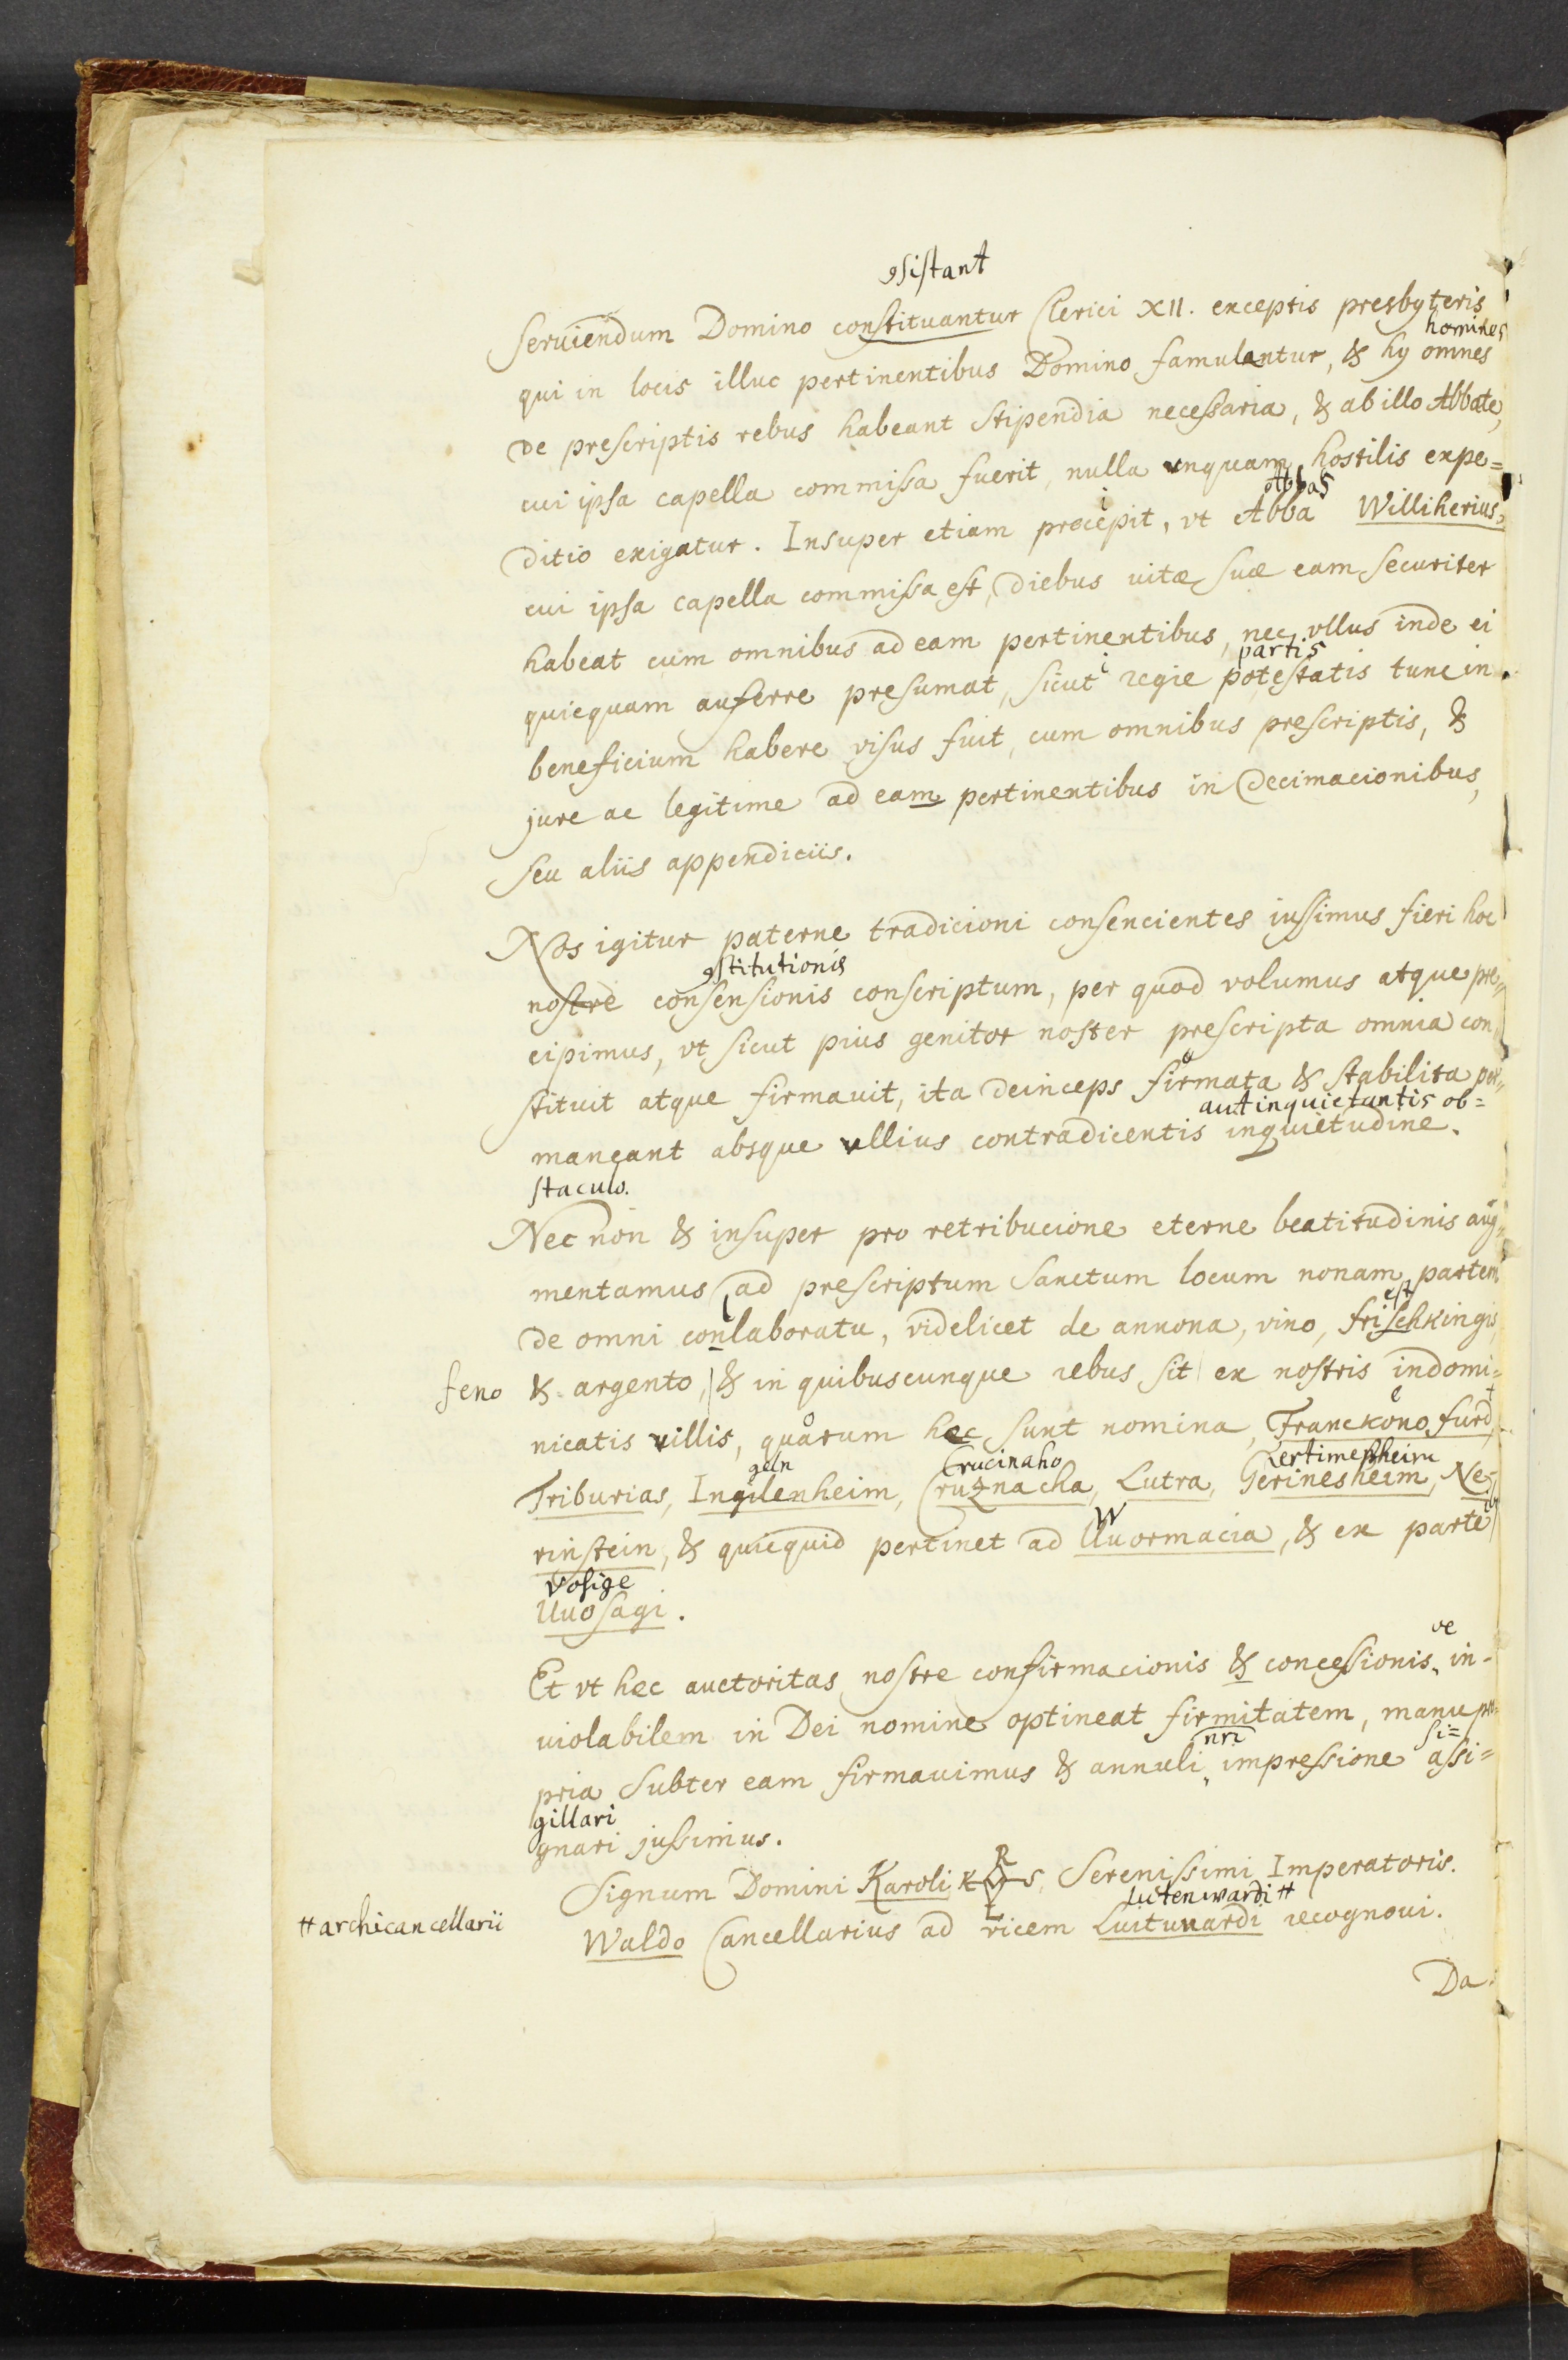 ꝯsistant
Seruiendum Domino constituantur Clerici XII. exceptis presbyteris
homines
qui in locis illuc pertinentibus Domino famulantur, & hy omnes
de prescriptis rebus habeant stipendia necessaria, & ab illo Abbate,
cui ipsa capella commissa fuerit, nulla vnquam hostilis expe=
i Abbas
ditio exigatur. Insuper etiam precepit, vt Abba Williherius,
cui ipsa capella commissa est, diebus uitæ suæ eam securiter
habeat cum omnibus ad eam pertinentibus, nec vllus inde ei
i partis
quicquam auferre presumat, sicut regie potestatis tunc in
beneficium habere visus fuit, cum omnibus prescriptis, &
jure ac legitime ad eam pertinentibus in decimacionibus,
seu aliis appendiciis.
Nos igitur paterne tradicioni consencientes iussimus fieri hoc
ꝯstitutionis
nostre consensionis conscriptum, per quod volumus atque pre=
cipimus, vt sicut pius genitor noster prescripta omnia con
stituit atque firmauit, ita deinceps firmata & stabilita per=
aut inquietantis ob=
maneant absque vllius contradicentis inquietudine.
staculo.
Nec non & insuper pro retribucione eterne beatitudinis aug=
mentamus ad prescriptum Sanctum locum nonam partem
l est
de omni conlaboratu, videlicet de annona, vino, frischkingis,
feno & argento, & in quibuscunque rebus sit ex nostris indomi=
o e t
nicatis villis, quarum hec sunt nomina, Franckonofurd,
geln Crucinaho
Triburias, Ingilenheim, Cruznacha, Lutra, Gerinesheim, Ne=
W
rinstein, & quicquid pertinet ad Uuormacia, & ex parte
vosige
Uuosagi.
ve
Et vt hec auctoritas nostre confirmacionis & concessionis in-
uiolabilem in Dei nomine optineat firmitatem, manu pro=
nri si=
pria subter eam firmauimus & annuli impressione assi=
gillari
gnari jussimus.
Signum Domini Karoli K R L S Serenissimi Imperatoris.
Lutenwardi #
# archicancellarii Waldo Cancellarius ad vicem Luituuardi recognoui.
Da